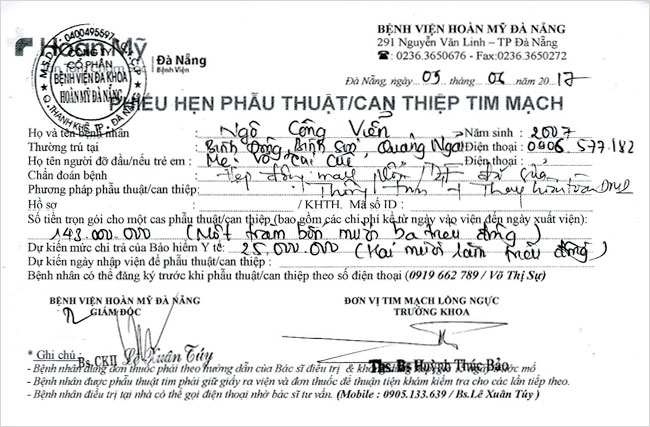 BỆNH VIỆN HOÀN MỸ ĐÀ NẴNG
291 Nguyễn Văn Linh – TP Đà Nẵng
☎: 0236.3650676 - Fax:0236.3650272
Hoàn Mỹ Đà Nẵng
Bệnh Viện
M.S.D.N: 0400495597 - C.T.C.P
CÔNG TY
CỔ PHẦN
BỆNH VIỆN ĐA KHOA
HOÀN MỸ ĐÀ NẴNG
Q. THANH KHÊ - TP. ĐÀ NẴNG
Đà Nẵng, ngày 05 tháng 06 năm 2017
PHIẾU HẸN PHẪU THUẬT/CAN THIỆP TIM MẠCH
Họ và tên bệnh nhân Ngô Công Viễn Năm sinh : 2007
Thường trú tại Bình Đông, Bình Sơn, Quảng Ngãi Điện thoại : 0906.577.182
Họ tên người đỡ đầu/nếu trẻ em : Mẹ: Võ Điện thoại :
Chẩn đoán bệnh : Hẹp động mạch
Phương pháp phẫu thuật/can thiệp:
Hồ sơ / KHTH. Mã số ID :
Số tiền trọn gói cho một cas phẫu thuật/can thiệp (bao gồm các chi phí kể từ ngày vào viện đến ngày xuất viện):
143.000.000 (Một trăm bốn mươi ba triệu đồng)
Dự kiến mức chi trả của Bảo hiểm Y tế: 25.000.000 (Hai mươi lăm triệu đồng)
Dự kiến ngày nhập viện để phẫu thuật/can thiệp :
Bệnh nhân có thể đăng ký trước khi phẫu thuật/can thiệp theo số điện thoại (0919 662 789 / Võ Thị Sự)
BỆNH VIỆN HOÀN MỸ ĐÀ NẴNG
GIÁM ĐỐC
ĐƠN VỊ TIM MẠCH LỒNG NGỰC
TRƯỞNG KHOA
Bs.CKII Lê Xuân Túy
Ths. Bs Huỳnh Thúc Bảo
* Ghi chú :
- Bệnh nhân dùng đơn thuốc phải theo hướng dẫn của Bác sĩ điều trị & ngày trước mổ
- Bệnh nhân được phẫu thuật tim phải giữ giấy ra viện và đơn thuốc để thuận tiện khám kiểm tra cho các lần tiếp theo.
- Bệnh nhân điều trị tại nhà có thể gọi điện thoại nhờ bác sĩ tư vấn. (Mobile : 0905.133.639 / Bs.Lê Xuân Túy )